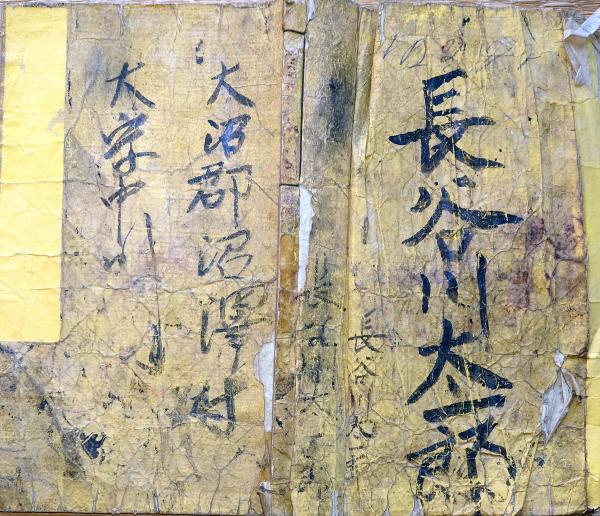 長谷川太郎
長谷川太
長谷川太郎
大沼郡沼澤村
大字中川